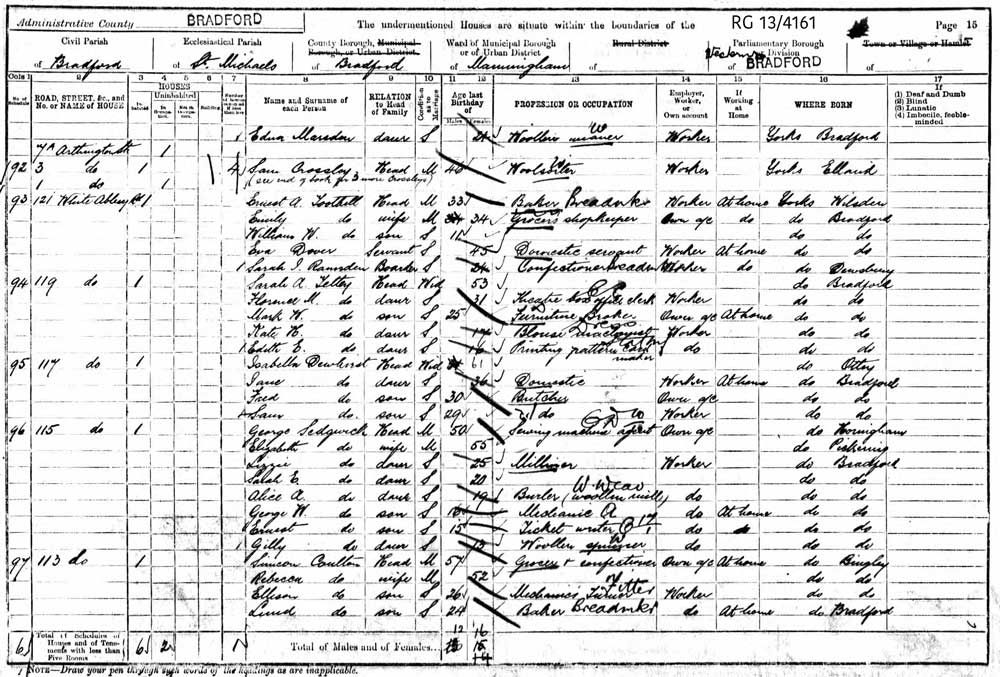 Administrative County BRADFORD The undermentioned Houses are situate within the boundaries of the RG 13/4161 Page 15
Civil Parish Ecclesiastical Parish County Borough, Municipal Borough, or Urban District Ward of Municipal Borough or of Urban District Rural District Parliamentary Borough or Division Town or Village or Hamlet
of Bradford of St. Michaels of Bradford of Manningham of of BRADFORD of
Cols 1 2 3 4 5 6 7 8 9 10 11 12 13 14 15 16 17
No. of Schedule ROAD, STREET, &c., and No. or NAME of HOUSE HOUSES Inhabited Uninhabited In Occupation Not in Occupation Building Name and Surname of each Person RELATION to Head of Family Condition as to Marriage Age last Birthday of Males Females PROFESSION OR OCCUPATION Employer, Worker, or Own account If Working at Home WHERE BORN If (1) Deaf and Dumb (2) Blind (3) Lunatic (4) Imbecile, feeble-minded
1 Edna Marsden daur S 21 Woollen Worker Yorks Bradford
7A Arthington St 1
92 3 do 1 4 Sam Crossley Head M 46 Worker Yorks Elland
(see end of book for 3 more Crossleys)
1 do 1
93 121 White Abbey Rd 1 Ernest A. Toothill Head M 33 Baker Breadmkr Worker At home Yorks Wilsden
Emily do wife M 34 Grocers shopkeeper Own a/c do do Bradford
William H. do son S 11 do do
Eva Dover Servant S 45 Domestic servant Worker At home do do
1 Sarah J. Ramsden Boarder S 24 Confectioner Worker do do Dewsbury
94 119 do 1 Sarah A. Tetley Head Wid 53 do Bradford
Florence M. do daur S 31 Theatre box office clerk Worker do do
Mark W. do son S 25 Furniture Broker Own a/c At home do do
Kate H. do daur S Blouse Worker do do
1 Edith E. do daur S 16 Printing pattern card maker do do do
95 117 do 1 Isabella Dewhirst Head Wid 61 do Otley
Jane do daur S 36 Domestic Worker At home do Bradford
Fred do son S 30 Butcher Own a/c do do
Sam do son S 29 do Worker do do
96 115 do 1 George Sedgwick Head M 50 Sewing machine agent Own a/c do Hovingham
Elizabeth do wife M 55 do Pickering
Lizzie do daur S 25 Milliner Worker do Bradford
Sarah E. do daur S 20 do do
Alice A. do daur S 19 Burler (woollen mill) do do do
George W. do son S Mechanic A do At home do do
Ernest do son S 15 Ticket writer do do do
1 Gilly do daur S 13 Woollen spinner do do do
97 113 do 1 Simeon Coulton Head M 57 Grocer & confectioner Own a/c At home do Bingley
Rebecca do wife M 52 do do
Ellison do son S 26 Mechanics Turner Fitter Worker do do
Lund do son S 24 Baker Breadmkr do At home do Bradford
6 Total of Schedules of Houses and of Tenements with less than Five Rooms 6 2 1 Total of Males and of Females... 12 16
NOTE—Draw your pen through such words of the headings as are inapplicable.